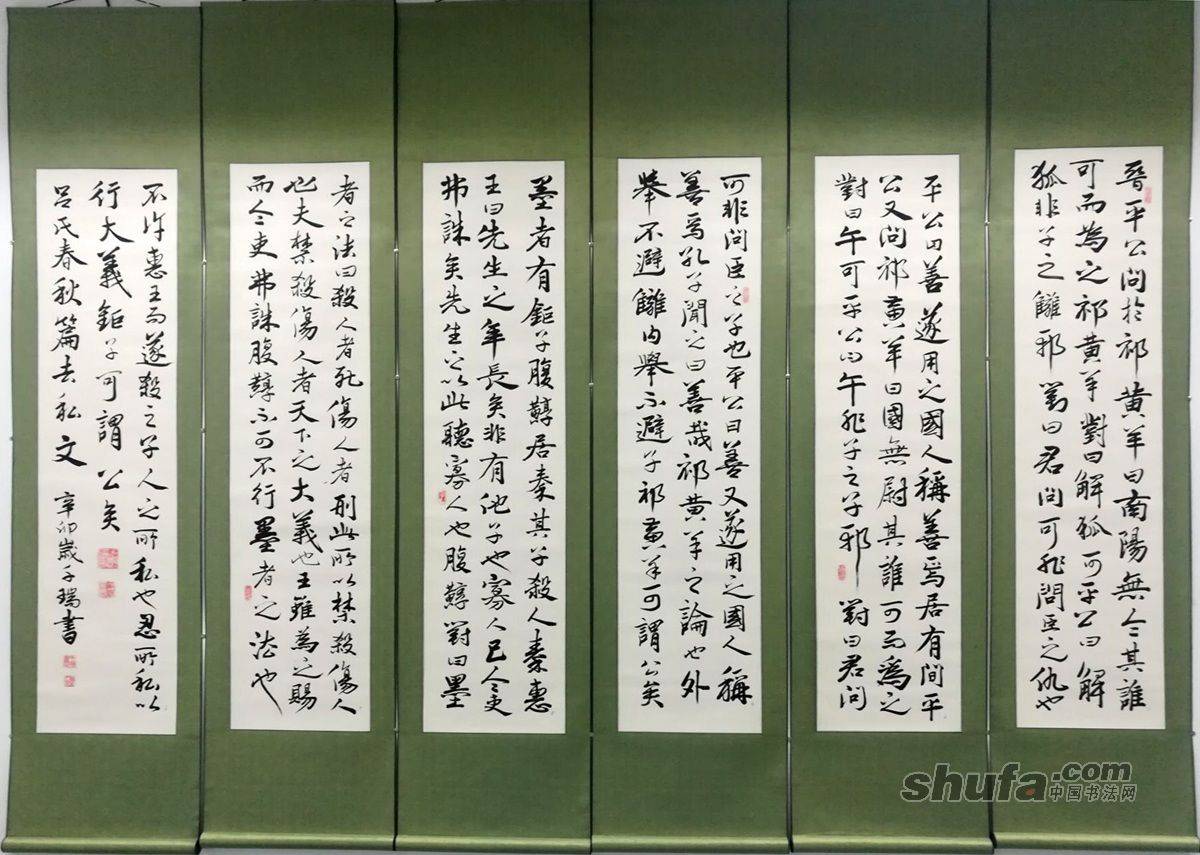 晉平公問於祁黃羊曰南陽無令其誰
可而為之祁黃羊對曰解狐可平公曰解
狐非子之讎邪對曰君問可非問臣之仇也
平公曰善遂用之國人稱善焉居有間平
公又問祁黃羊曰國無尉其誰可而為之
對曰午可平公曰午非子之子邪對曰君問
可非問臣之子也平公曰善又遂用之國人稱
善焉孔子聞之曰善哉祁黃羊之論也外
舉不避讎內舉不避子祁黃羊可謂公矣
墨者有鉅子腹䵍居秦其子殺人秦惠
王曰先生之年長矣非有他子也寡人已令吏
弗誅矣先生之以此聽寡人也腹䵍對曰墨
者之法曰殺人者死傷人者刑此所以禁殺傷人
也夫禁殺傷人者天下之大義也王雖為之賜
而令吏弗誅腹䵍不可不行墨者之法也
不許惠王而遂殺之子人之所私也忍所私以
行大義鉅子可謂公矣
呂氏春秋篇去私文
辛卯歲子瑞書
shufa.com
中国书法网